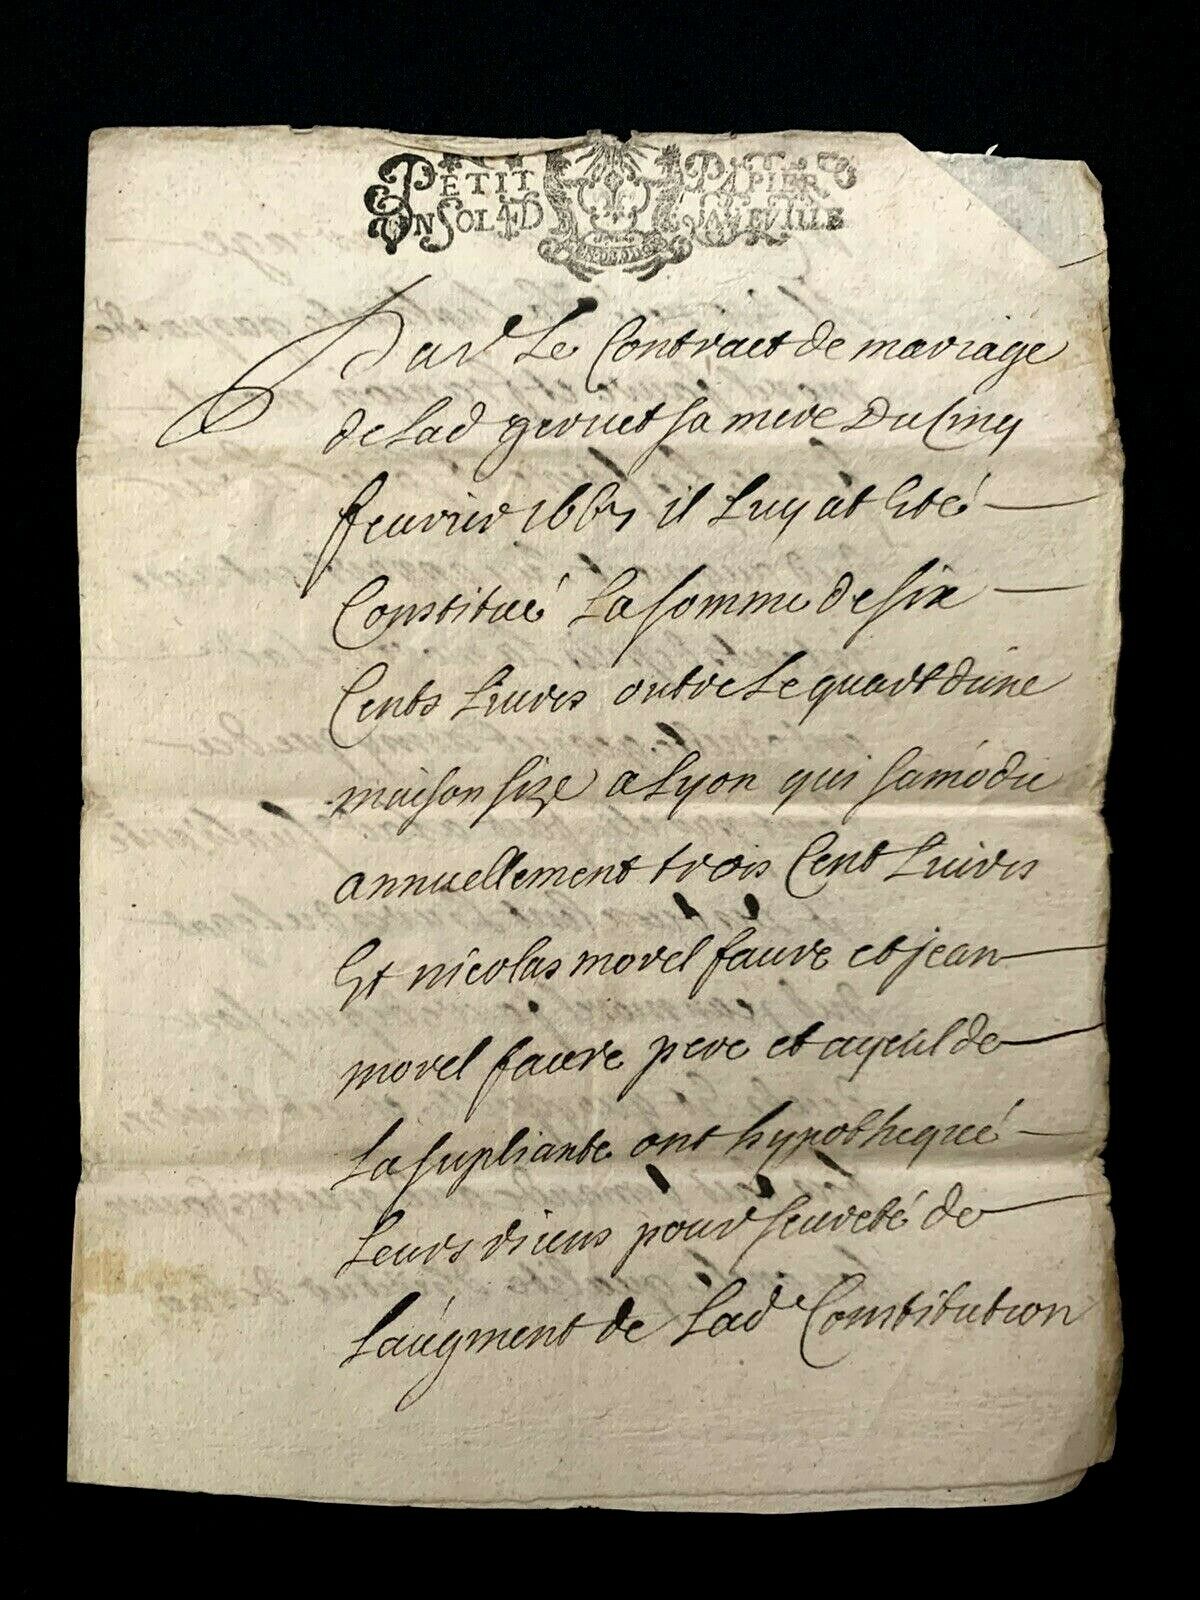 PETIT PAPIER
UN SOL 4D
Par le Contract de mariage
de lad gervet sa mere du Cinq
fevrier 1667 il luy at Eté
Constitué la somme de six
Cents livres outre le quart d'une
maison size a Lyon qui samodie
annuellement trois Cent livres
Et nicolas morel faure et jean
morel faure pere et ayeul de
la supliante ont hypothequé
leurs biens pour seureté de
l'augment de lad Constitution